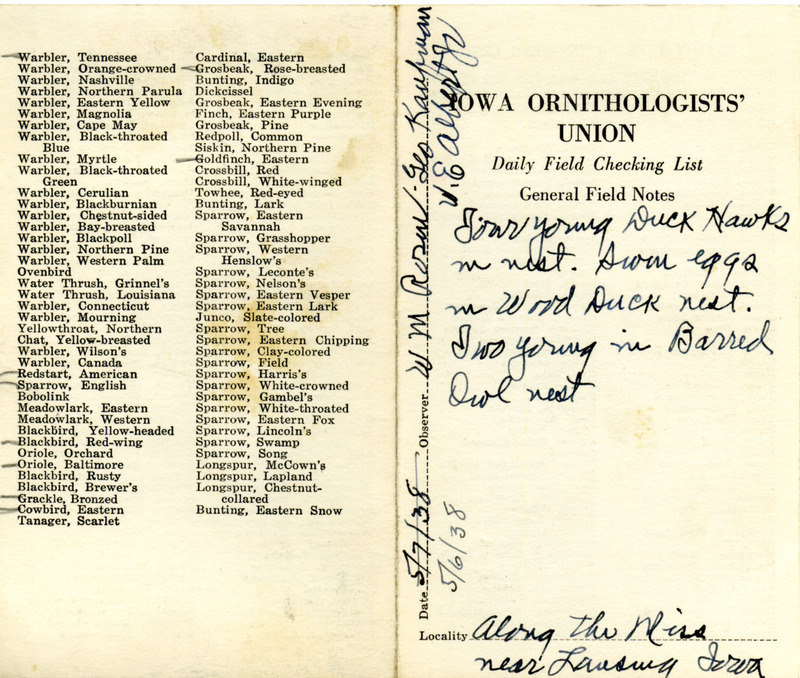 Warbler, Tennessee
Warbler, Orange-crowned
Warbler, Nashville
Warbler, Northern Parula
Warbler, Eastern Yellow
Warbler, Magnolia
Warbler, Cape May
Warbler, Black-throated
Blue
Warbler, Myrtle
Warbler, Black-throated
Green
Warbler, Cerulian
Warbler, Blackburnian
Warbler, Chestnut-sided
Warbler, Bay-breasted
Warbler, Blackpoll
Warbler, Northern Pine
Warbler, Western Palm
Ovenbird
Water Thrush, Grinnel's
Water Thrush, Louisiana
Warbler, Connecticut
Warbler, Mourning
Yellowthroat, Northern
Chat, Yellow-breasted
Warbler, Wilson's
Warbler, Canada
Redstart, American
Sparrow, English
Bobolink
Meadowlark, Eastern
Meadowlark, Western
Blackbird, Yellow-headed
Blackbird, Red-wing
Oriole, Orchard
Oriole, Baltimore
Blackbird, Rusty
Blackbird, Brewer's
Grackle, Bronzed
Cowbird, Eastern
Tanager, Scarlet
Cardinal, Eastern
Grosbeak, Rose-breasted
Bunting, Indigo
Dickcissel
Grosbeak, Eastern Evening
Finch, Eastern Purple
Grosbeak, Pine
Redpoll, Common
Siskin, Northern Pine
Goldfinch, Eastern
Crossbill, Red
Crossbill, White-winged
Towhee, Red-eyed
Bunting, Lark
Sparrow, Eastern
Savannah
Sparrow, Grasshopper
Sparrow, Western
Henslow's
Sparrow, Leconte's
Sparrow, Nelson's
Sparrow, Eastern Vesper
Sparrow, Eastern Lark
Junco, Slate-colored
Sparrow, Tree
Sparrow, Eastern Chipping
Sparrow, Clay-colored
Sparrow, Field
Sparrow, Harris's
Sparrow, White-crowned
Sparrow, Gambel's
Sparrow, White-throated
Sparrow, Eastern Fox
Sparrow, Lincoln's
Sparrow, Swamp
Sparrow, Song
Longspur, McCown's
Longspur, Lapland
Longspur, Chestnut-
collared
Bunting, Eastern Snow
Date 5/7/38 Observer W M Rosene - Geo Kaufman
5/6/38 W.E Albert Jr
IOWA ORNITHOLOGISTS'
UNION
Daily Field Checking List
General Field Notes
Four young Duck Hawks
in nest. Seven eggs
in Wood Duck nest.
Two young in Barred
Owl nest
Locality Along the Miss
near Lansing Iowa